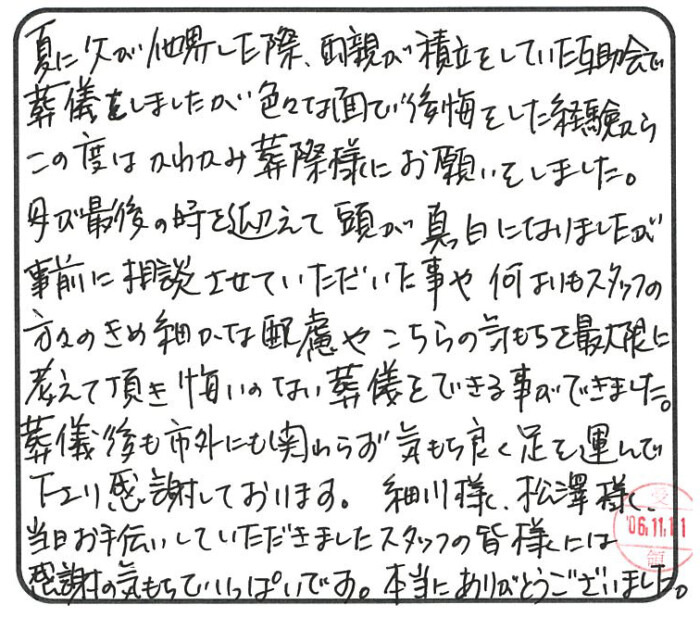 夏に父が他界した際、両親が積立をしていた互助会で
葬儀をしましたが色々な面で後悔をした経験から
この度はかわかみ葬際様にお願いをしました。
母が最後の時を迎えて頭が真白になりましたが
事前に相談させていただいた事や何よりもスタッフの
方々のきめ細かな配慮やこちらの気もちを最大限に
考えて頂き悔いのない葬儀をできる事ができました。
葬儀後も市外にも関わらず気もち良く足を運んで
下さり感謝しております。細川様、松澤様、
当日お手伝いしていただきましたスタッフの皆様には
感謝の気もちでいっぱいです。本当にありがとうございました。
受
'06.11.11
領